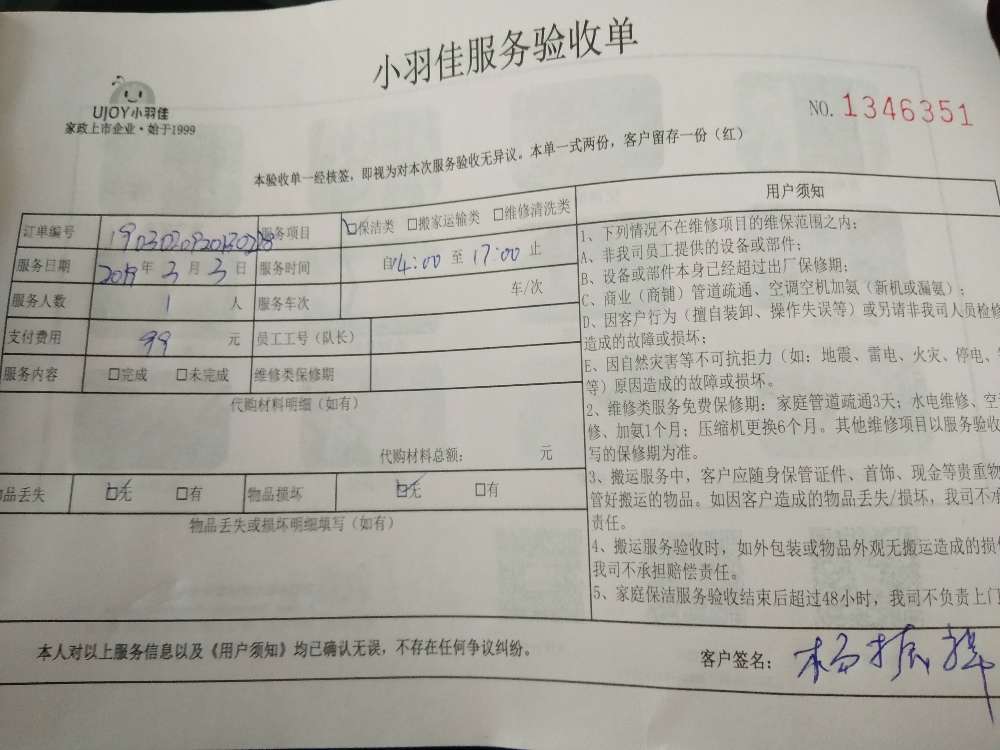 小羽佳服务验收单
UJOY小羽佳
家政上市企业·始于1999
NO. 1346351
本验收单一经核签，即视为对本次服务验收无异议。本单一式两份，客户留存一份（红）
订单编号 服务项目 ☑保洁类 □搬家运输类 □维修清洗类
服务日期 2019 年 3 月 3 日 服务时间 自14:00 至 17:00 止
服务人数 1 人 服务车次 车/次
支付费用 99 元 员工工号（队长）
服务内容 □完成 □未完成 维修类保修期
代购材料明细（如有）
代购材料总额： 元
物品丢失 ☑无 □有 物品损坏 ☑无 □有
物品丢失或损坏明细填写（如有）
用户须知
1、下列情况不在维修项目的维保范围之内；
A、非我司员工提供的设备或部件；
B、设备或部件本身已经超过出厂保修期；
C、商业（商铺）管道疏通、空调空机加氨（新机或漏氨）；
D、因客户行为（擅自装卸、操作失误等）或另请非我司人员检修
造成的故障或损坏；
E、因自然灾害等不可抗拒力（如：地震、雷电、火灾、停电、
等）原因造成的故障或损坏。
2、维修类服务免费保修期：家庭管道疏通3天；水电维修、空
修、加氨1个月；压缩机更换6个月。其他维修项目以服务验收
写的保修期为准。
3、搬运服务中，客户应随身保管证件、首饰、现金等贵重物
管好搬运的物品。如因客户造成的物品丢失/损坏，我司不承
责任。
4、搬运服务验收时，如外包装或物品外观无搬运造成的损
我司不承担赔偿责任。
5、家庭保洁服务验收结束后超过48小时，我司不负责上门
本人对以上服务信息以及《用户须知》均已确认无误，不存在任何争议纠纷。
客户签名： 杨振